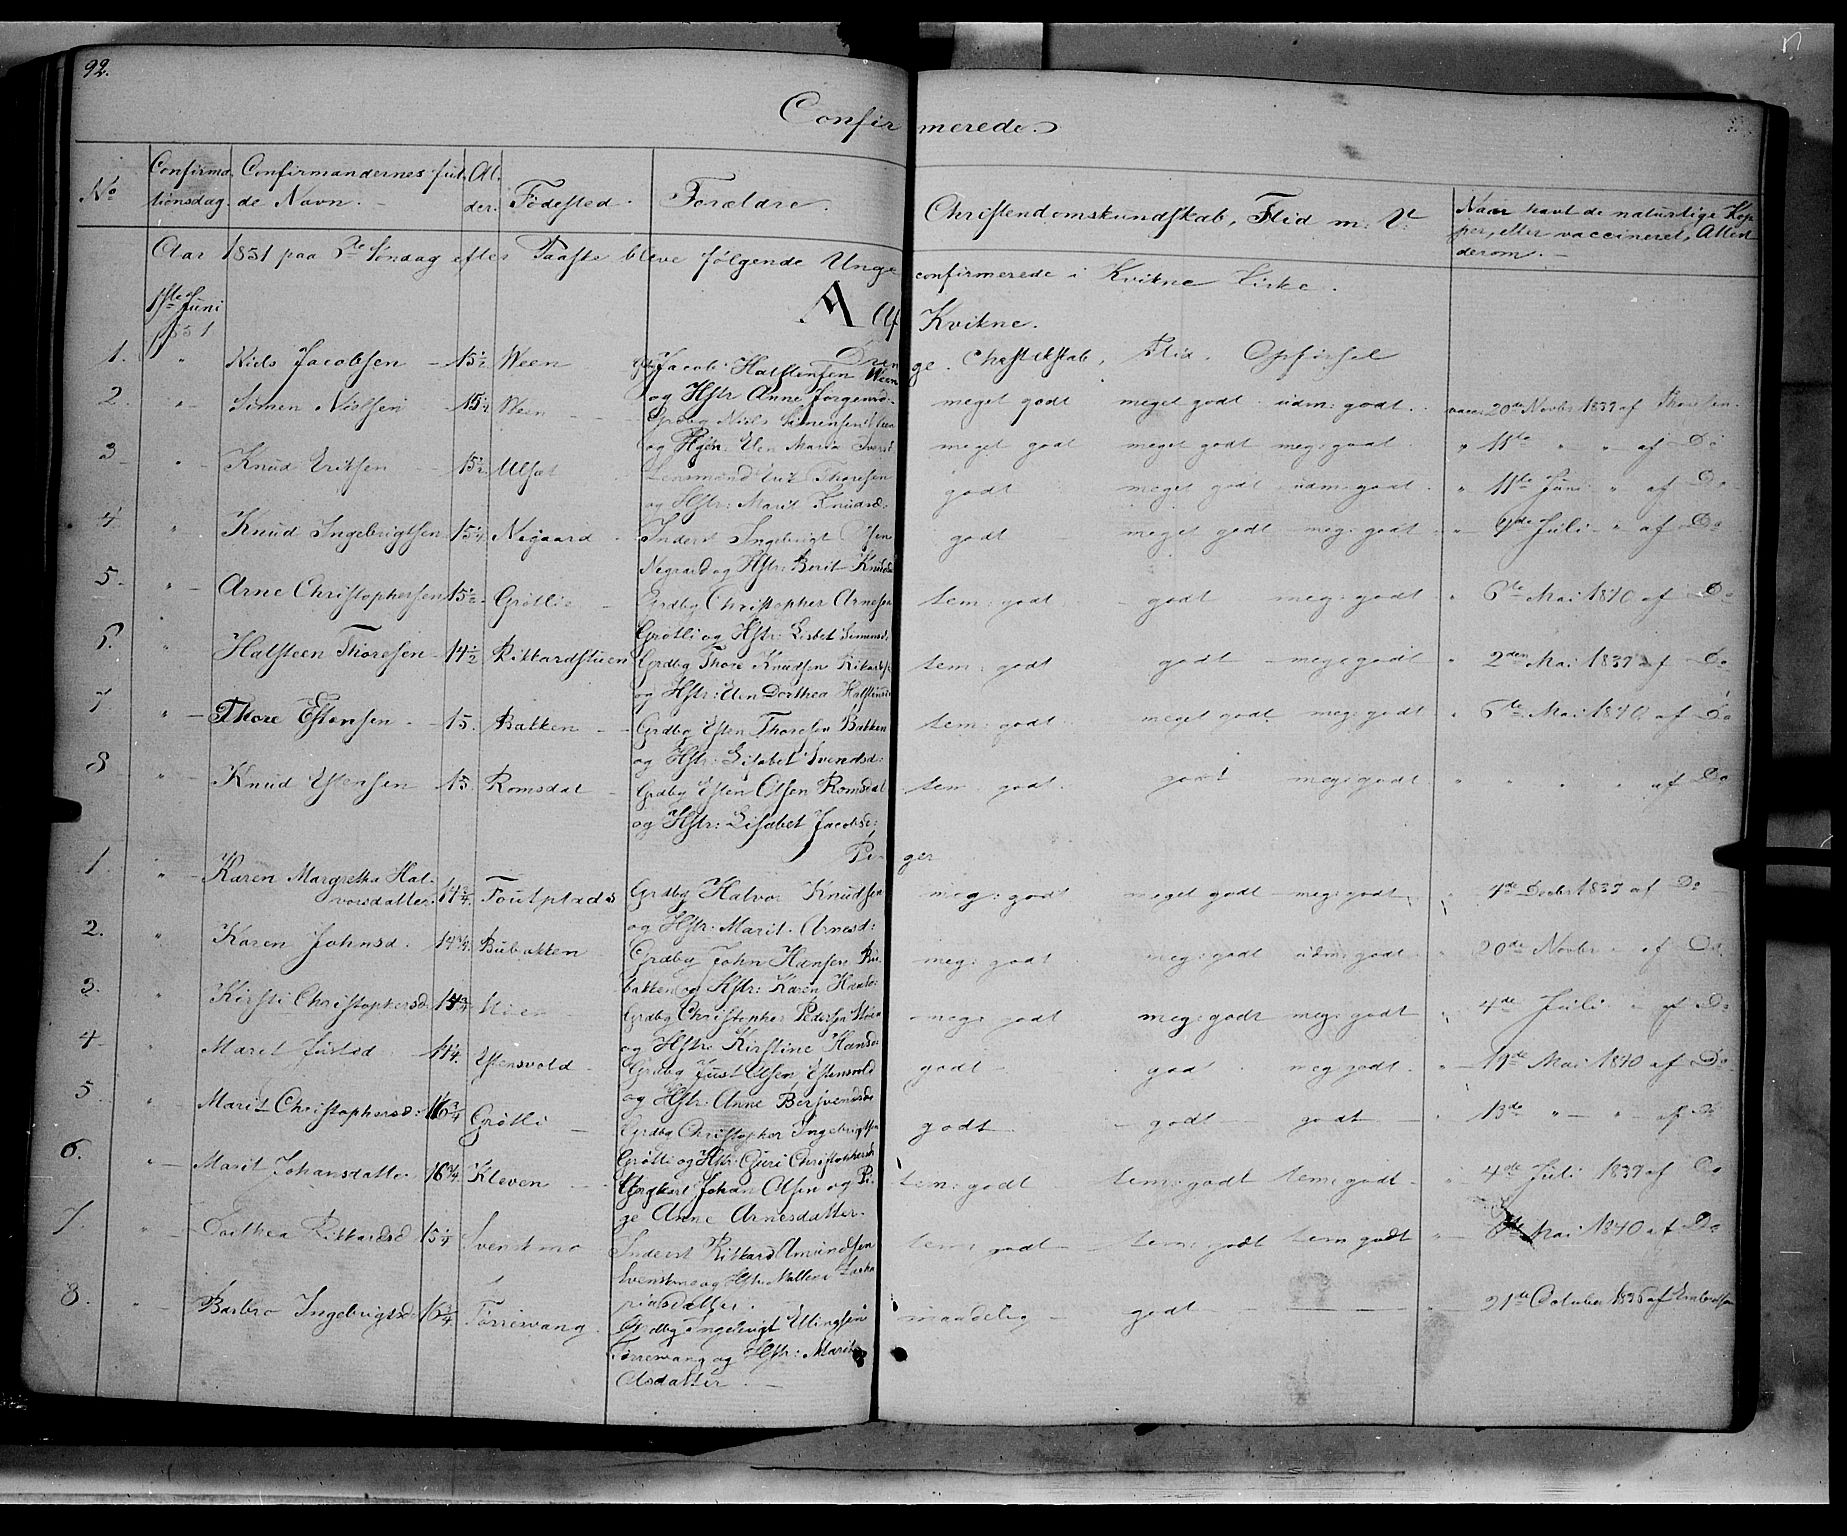 92.
Confirmerede.
No
Confirma-
tionsdag.
Confirmandernes ful-
de Navn.
Al-
der.
Fødested.
Forældre.
Christendomskundskab, Flid m: V:
Naar havt de naturlige Kop-
per, eller vaccineret, Attest
derom.
Aar 1851 paa Søndag efter Paaske bleve følgende Unge confirmerede i Kvikne Kirke.
Juni
1851
A Af Kvikne.
Drenge. Chrstdkskab, Flid. Opførsel
1. " Niels Jacobsen 15½ Ween Jacob Halstensen Ween
og Hstr Anne Jørgensd. meget godt meget godt udm: godt vacc: 20de Novbr 1837 af Thoresen.
2 " Simen Nielsen 15¼ Ween Grdbg Niels Simensen Ween
og Hstr. Elen Maria Iversd meget godt meget godt meg: godt " 11te " " af Do
3 " Knud Eriksen 15½ Ulset Lensmand Erik Thoresen
og Hstr: Marit Knudsd: godt meget godt udm: godt " 11te Juni " af Do
4 " Knud Ingebrigtsen 15¼ Negaard Inderst Ingebrigt Olsen
Negaard og Hstr: Berit Knudsd godt meget godt meg: godt " Juli " af Do
5. " Arne Christophersen 15½ Grøtlie Grdbg Christopher Arnesen
Grøtli og Hstr: Lisbet Simensd: tem: godt godt meg: godt " 6te Mai 1840 af Do
6. " Halsteen Thoresen 14½ Rikkardstuen Grdbg Thore Knudsen Rikards
og Hstr: Elen Dorthea Halstensd tem: godt godt meg: godt " 2den Mai 1837 af Do
7 " Thore Estensen 15. Bakken Grdbg Esten Thoresen Bakken
og Hstr: Lisabet Svendsd: tem: godt meget godt meg: godt " 6te Mai 1840 af Do
8 " Knud Estensen 15 Romsdal Grdbg Esten Olsen Romsdal
og Hstr: Lisabet Jacobsd: tem: godt. godt meg: godt " " " " af Do
Piger
1 " Karen Margretha Hal-
vorsdatter 14¾ Foutplads Grdbg Halvor Knudsen
og Hstr: Marit Arnesd: meg: godt meget godt meg: godt " 4de Decbr 1837 af Do
2. " Karen Johnsd. 14¾ Bubakken Grdbg John Hansen Bu-
bakken og Hstr: Karen Hansd: meg: godt meg: godt udm: godt " 20de Novbr " af Do
3. " Kirsti Christophersd. Stuen Grdbg Christopher Pedersen Stuen
og Hstr: Kirstine Hansd: meg: godt meg: godt meg: godt 4de Juli " af Do
4 " Marit Justsd 14¼ Estensvold Grdbg Just Olsen Estensvold
og Hstr: Anne Bersvendsd: godt godt meg godt " 19de Mai 1840 af Do
5 " Marit Christophersd: 16¾ Grøtli Grdbg Christopher Ingebrigtsen
Grøtli og Hstr: Guri Christophersd godt godt godt " 13de " " af Do
6. " Marit Johansdatter 16¾ Kleven Ungkarl Johan Olsen og Pi-
ge Anne Arnesdatter. tem: godt tem: godt tem: godt " 4de Juli 1837 af Do
7. " Dorthea Rikkardsd 15¼ Svenskmo Inderst Rikkard Amundsen
Svenskmo og Hstr: Mallena Zacha-
riasdatter. tem: godt tem: godt tem godt " 6te Mai 1840 af Do
8. " Barbro Ingebrigtsd 16¾ Torrevang Grdbg Ingebrigt Ellingsen
Torrevang og Hstr: Marit
Olsdatter. maadelig godt " 21de October 1836 af Embretsen